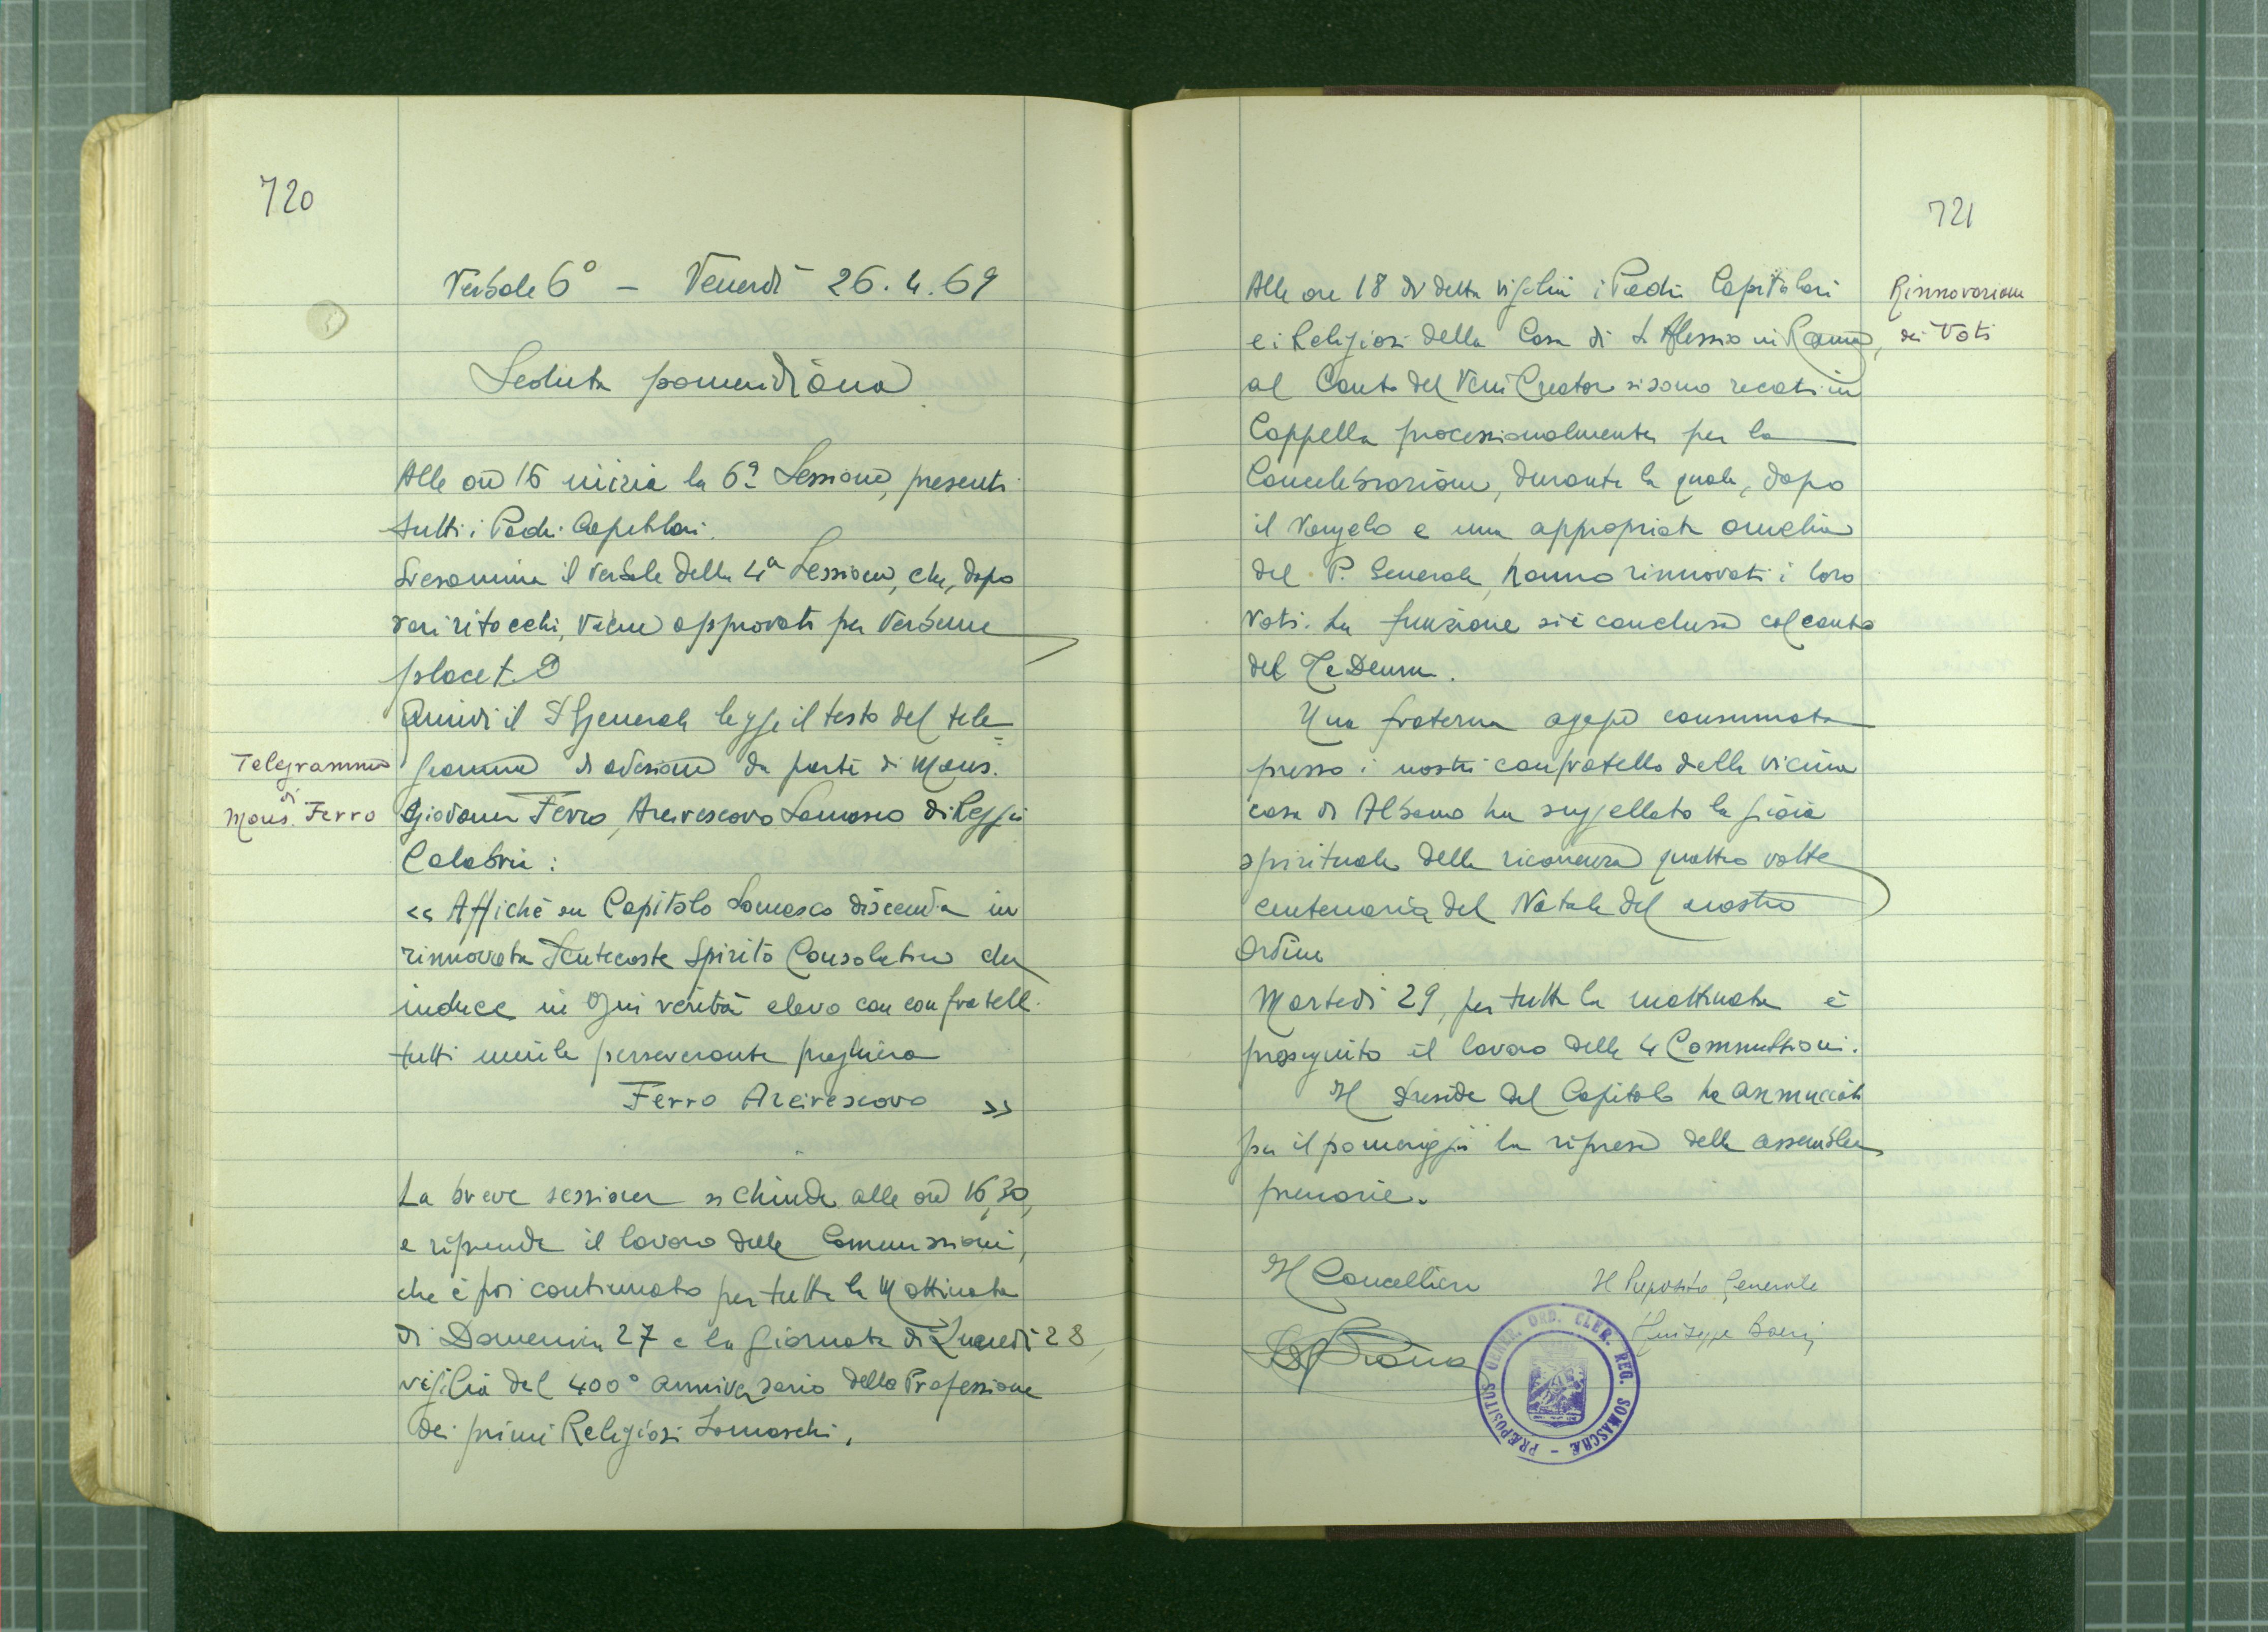 720
Verbale 6° - Venerdì 26.4.69
Seduta pomeridiana
Alle ore 16 inizia la 6ª Sessione, presenti
tutti i Padri Capitolari.
Si esamina il verbale della 4ª Sessione, che, dopo
vari ritocchi, viene approvato per Verbum
placet.
Quindi il P. Generale legge il testo del tele=
gramma di adesione da parte di Mons.
Giovanni Ferro, Arcivescovo Somasco di Reggio
Calabria:
Telegramma
di
Mons. Ferro
<< Affiché su Capitolo Somasco discenda in
rinnovata Pentecoste Spirito Consolatore che
induce in ogni verità elevo con confratelli
tutti umile perseverante preghiera
Ferro Arcivescovo >>
La breve sessione si chiude alle ore 16,30,
e riprende il lavoro delle Commissioni,
che è poi continuato per tutta la Mattinata
di Domenica 27 e la giornata di Lunedì 28,
vigilia del 400° anniversario della Professione
dei primi Religiosi Somaschi.
721
Alle ore 18 di detta vigilia i Padri Capitolari
e i Religiosi della Casa di S. Alessio in Roma,
al Canto del Veni Creator si sono recati in
Cappella processionalmente per la
Concelebrazione, durante la quale, dopo
il Vangelo e una appropriata omelia
del P. Generale, hanno rinnovati i loro
Voti. La funzione si è conclusa col canto
del Te Deum.
Rinnovazione
dei Voti
Una fraterna agape consumata
presso i nostri confratello della vicina
casa di Albano ha suggellato la gioia
spirituale della ricorrenza quattro volte
centenaria del Natale del nostro
Ordine
Martedì 29, per tutta la mattinata è
proseguito il lavoro delle 4 Commissioni.
Il Preside del Capitolo ha annunciato
per il pomeriggio la ripresa delle assemblee
prenarie.
Il Cancelliere
Il Preposito Generale
Giuseppe Boeri
PRÆPOSITUS GENER. ORD. CLER. REG. SOMASCHÆ -